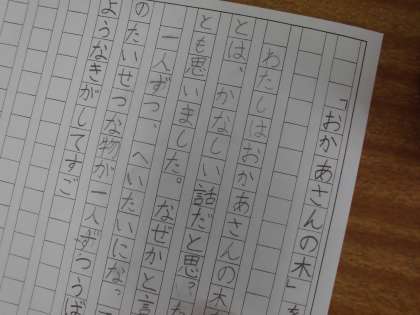 「おかあさんの木」を
わたしはおかあさんの木
とは、かなしい話だと思っ
とも思いました。なぜかと言
一人ずつ、へいたいにな
のたいせつな物が一人ずつうば
ようなきがしてすご